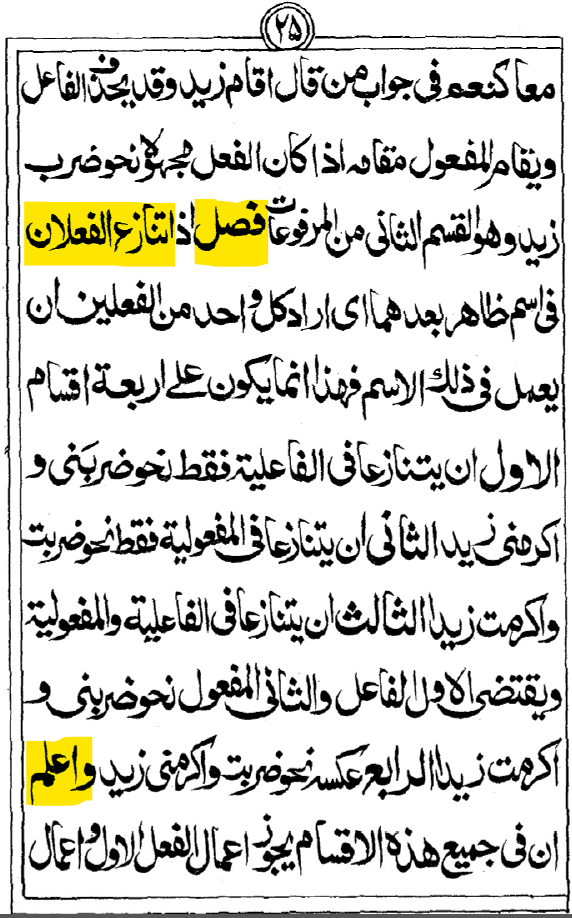 ٢٥
معا كنعم فى جواب من قال اقام زيد وقد يحذف الفاعل
ويقام المفعول مقامه اذا كان الفعل مجهولا نحو ضرب
زيد وهو القسم الثانى من المرفوعات فصل اذا تنازع الفعلان
فى اسم ظاهر بعدهما اى اراد كل واحد من الفعلين ان
يعمل فى ذلك الاسم فهذا انما يكون على اربعة اقسام
الاول ان يتنازعا فى الفاعلية فقط نحو ضربنى و
اكرمنى زيد الثانى ان يتنازعا فى المفعولية فقط نحو ضربت
واكرمت زيدا الثالث ان يتنازعا فى الفاعلية والمفعولية
ويقتضى الاول الفاعل والثانى المفعول نحو ضربنى و
اكرمت زيدا الرابع عكسه نحو ضربت واكرمنى زيد واعلم
ان فى جميع هذه الاقسام يجوز اعمال الفعل الاول واعمال